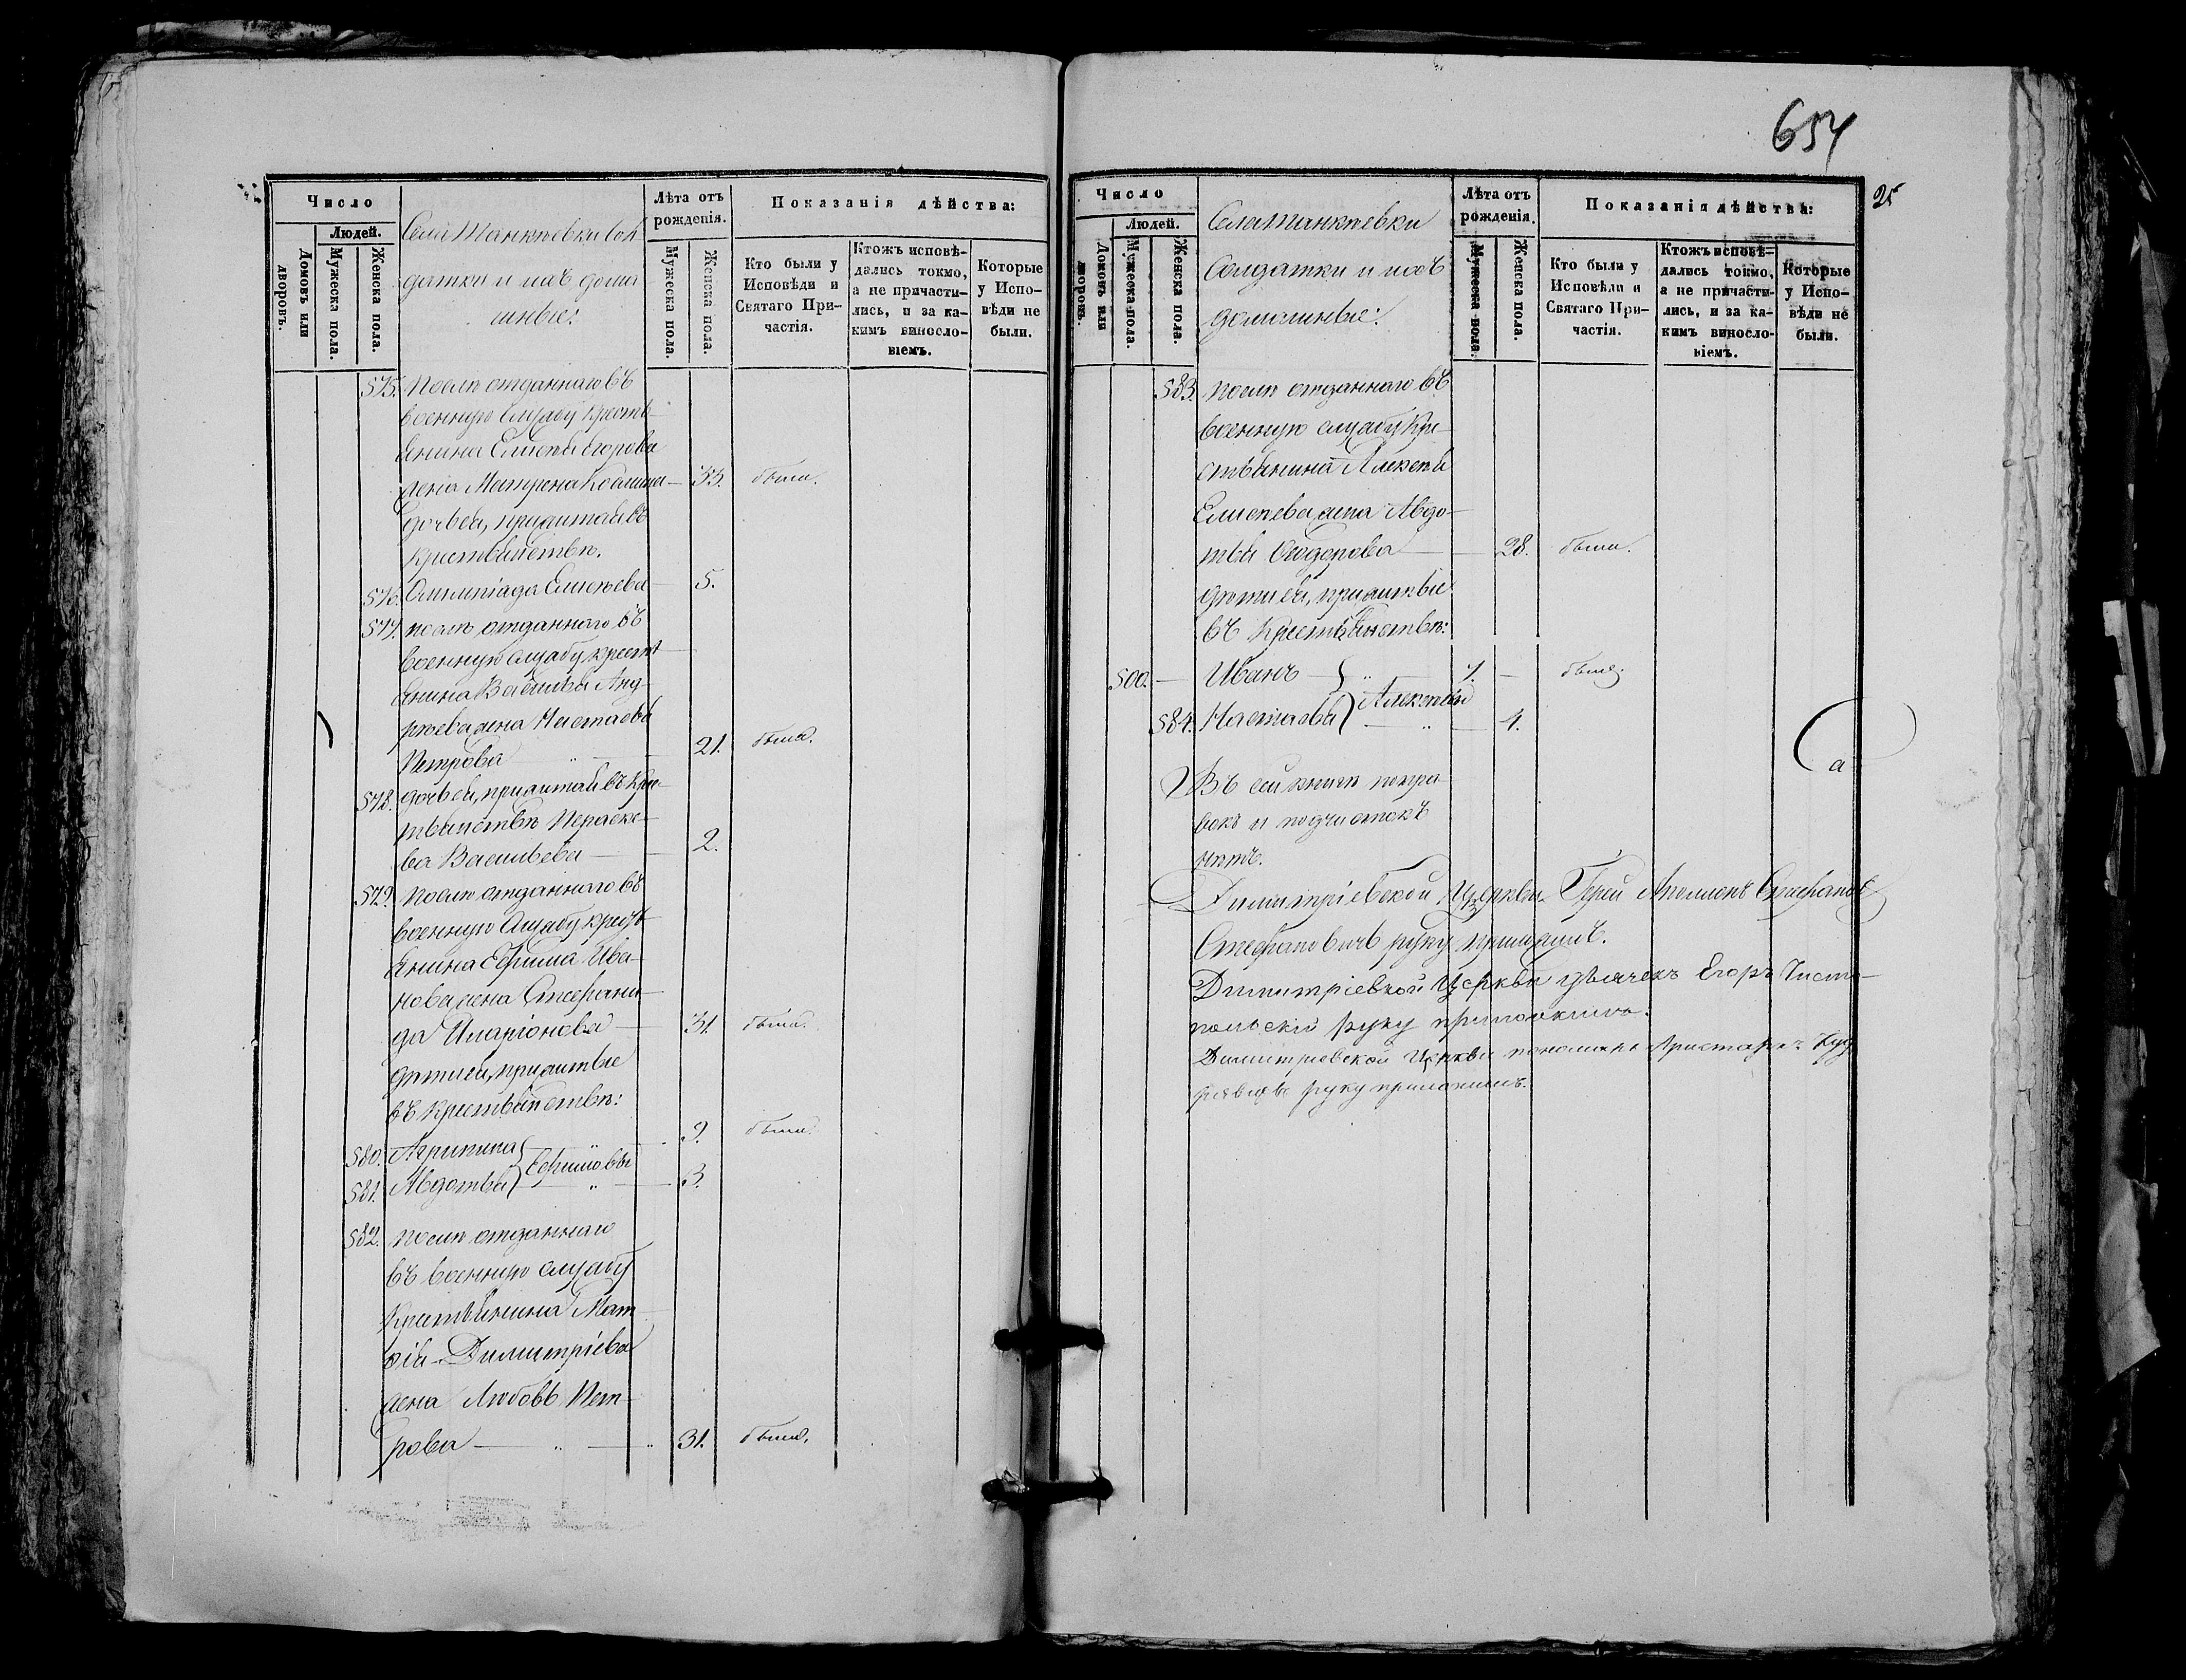 654
25
Число
Людей.
Домовъ или дворовъ.
Мужеска пола.
Женска пола.
Села Танкѣевки Сол
датки и ихъ дома
шные:
Лѣта отъ рожденія.
Мужеска пола.
Женска пола.
Показанія дѣйства:
Кто были у Исповѣди и Святаго Причастія.
Ктожъ исповѣдались токмо, а не причастились, и за какимъ винословіемъ.
Которые у Исповѣди не были.
575. послѣ отданнаго въ
военную Службу кресть
янина Елисѣя Егорова
жена Матрена 33. была.
дочь ея, прижитая въ
крестьянствѣ.
576. Олимпіада Елисѣева 5.
577. послѣ отданнаго въ
военную службу кресть
янина Василья Анд-
реева жена Настасья
Петрова 21. была.
578. дочь ея, прижитая въ кре-
стьянствѣ Параске-
ва Васильева 2.
579. послѣ отданнаго въ
военную Службу крест
янина Ефима Ива-
нова жена Стефани-
да Иларіонова 31. была.
дѣти ея, прижитые
въ крестьянствѣ:
580. Агрипина 9. была.
Ефимовы
581. Авдотья 3.
582. послѣ отданнаго
въ военную службу
Крестьянина Мат
ѳія Димитріева
жена Любовь Пет-
рова 31. была.
Число
Людей.
Домовъ или дворовъ.
Мужеска пола.
Женска пола.
Села Танкѣевки
Солдатки и ихъ
домашные:
Лѣта отъ рожденія.
Мужеска пола.
Женска пола.
Показанія дѣйства:
Кто были у Исповѣди и Святаго Причастія.
Ктожъ исповѣдались токмо, а не причастились, и за какимъ винословіемъ.
Которые у Исповѣди не были.
583. послѣ отданнаго въ
военную службу Кре-
стьянина Алексѣя
Елисѣева жена Авдо-
тья Ѳеодорова 28. была.
дѣти ея, прижитые
въ Крестьянствѣ:
500. Иванъ 7. былъ.
Алексѣевы
584. Настасья 4.
Въ сей книгѣ попра
вокъ и подчистокъ
нѣтъ.
Димитріевской Церкви Іерей Аполлонъ
Стефановичъ руку приложилъ.
Димитріевской Церкви дьячекъ Егоръ Чисто-
польскій руку приложилъ.
Димитріевской Церкви пономарь Аристархъ
руку приложилъ.